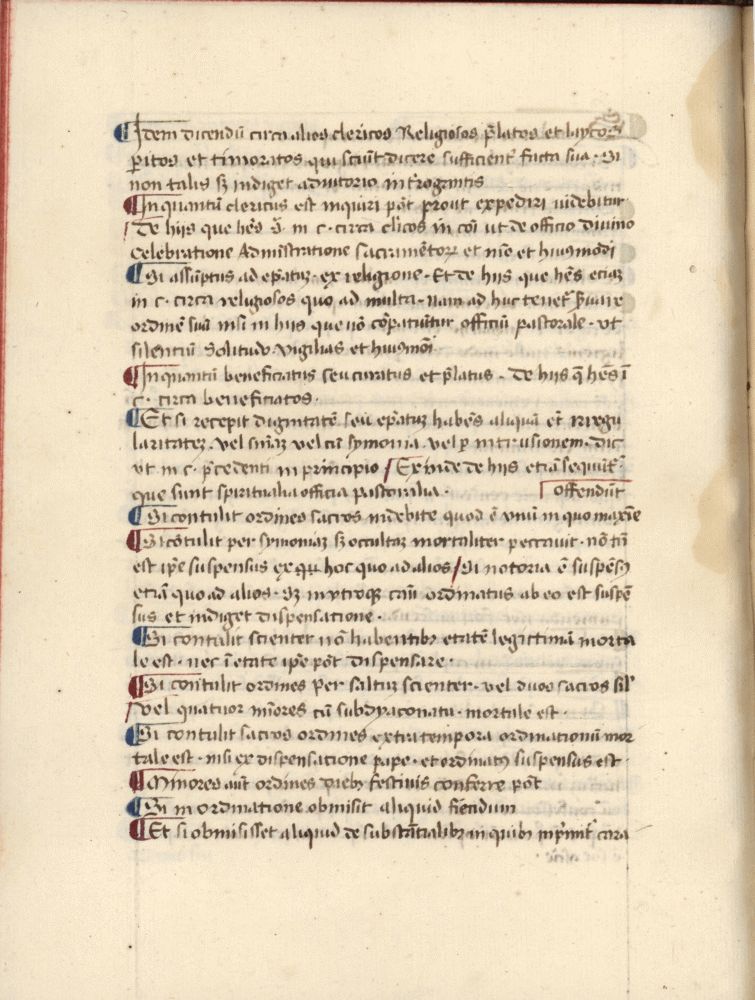 ¶ Idem dicendū circa alios clericos Religiosos p̄latos et laycos
peritos et timoratos qui sciūt dicere sufficient̄ facta sua · Si
non talis sʒ indiget adiutorio int̄rogantis
¶ Inquantū clericus est inquiri pōt prout expediri uidebitur
/ De hijs que hēs s̄ · in c · circa clīcos in cōi ut de officio diuino
Celebratione Adminīstratione sacramētoꝝ et nīo et hiusmōdi
¶ Si assūptus ad ep̄atuʒ · ex religione · Et de hijs que hēs eciaʒ
in c · circa religiosos quo ad multa · nam ad huc tenet̄ s̄uare
ordinē suū nisi in hijs que nō cōpatiūtur officiū pastorale · vt
silentiū Solitudo · vigilias et hiusmōi
¶ Inquantū beneficiatus seu curatus et p̄latus · De hijs q̄ hēs ī
c · circa beneficiatos ·
¶ Et si recepit dignitatē seu ep̄atuʒ habēs aliquā et̄ irregu
laritateʒ · vel sīnaʒ vel cū symonia · vel ꝑ intrusionem · dic̄
vt in c · p̄cedenti in principio / Exinde de hijs etiā sequit̄ ·
que sunt spiritualia officia pastoralia · offendūt
¶ Si contulit ordines sacros indebite quod ē vnū in quo maxīe
¶ Si cōtulit per symoniaʒ sʒ occultaʒ mortaliter peccauit · nō tn̄
est ip̄e suspensus ex quo hoc quo ad alios / Si notoria ē suspēsꝰ
etiā quo ad alios · Sʒ in vtroqʒ casū ordinatus ab eo est suspē
sus et indiget dispensatione ·
¶ Si contulit scienter nō habentibʒ etatē legittimā morta
le est · nec ī etate ip̄e pōt dispensare ·
¶ Si contulit ordines per saltuʒ scienter · vel duos sacros sil'
/ vel quatuor mīores cū subdyaconatu · mortale est ·
¶ Si contulit sacros ordines extra tempora ordinationū mor
tale est · nisi ex dispensatione pape · et ordinatꝰ suspensus est ·
¶ Minores aūt ordines diebʒ festiuis conferre pōt
¶ Si in ordinatione obmisit aliquid fiēdum
¶ Et si obmisisset aliquid de substātialibʒ in quibʒ inp̄mit̄ cara